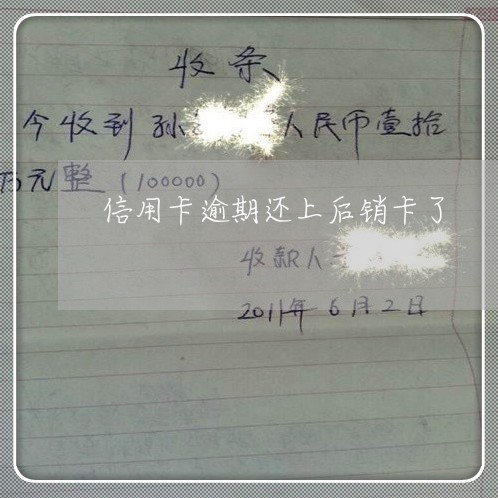 收条
今收到孙 人民币壹拾
万元整(100000)
信用卡逾期还上后销卡了
收款人
2011年6月2日